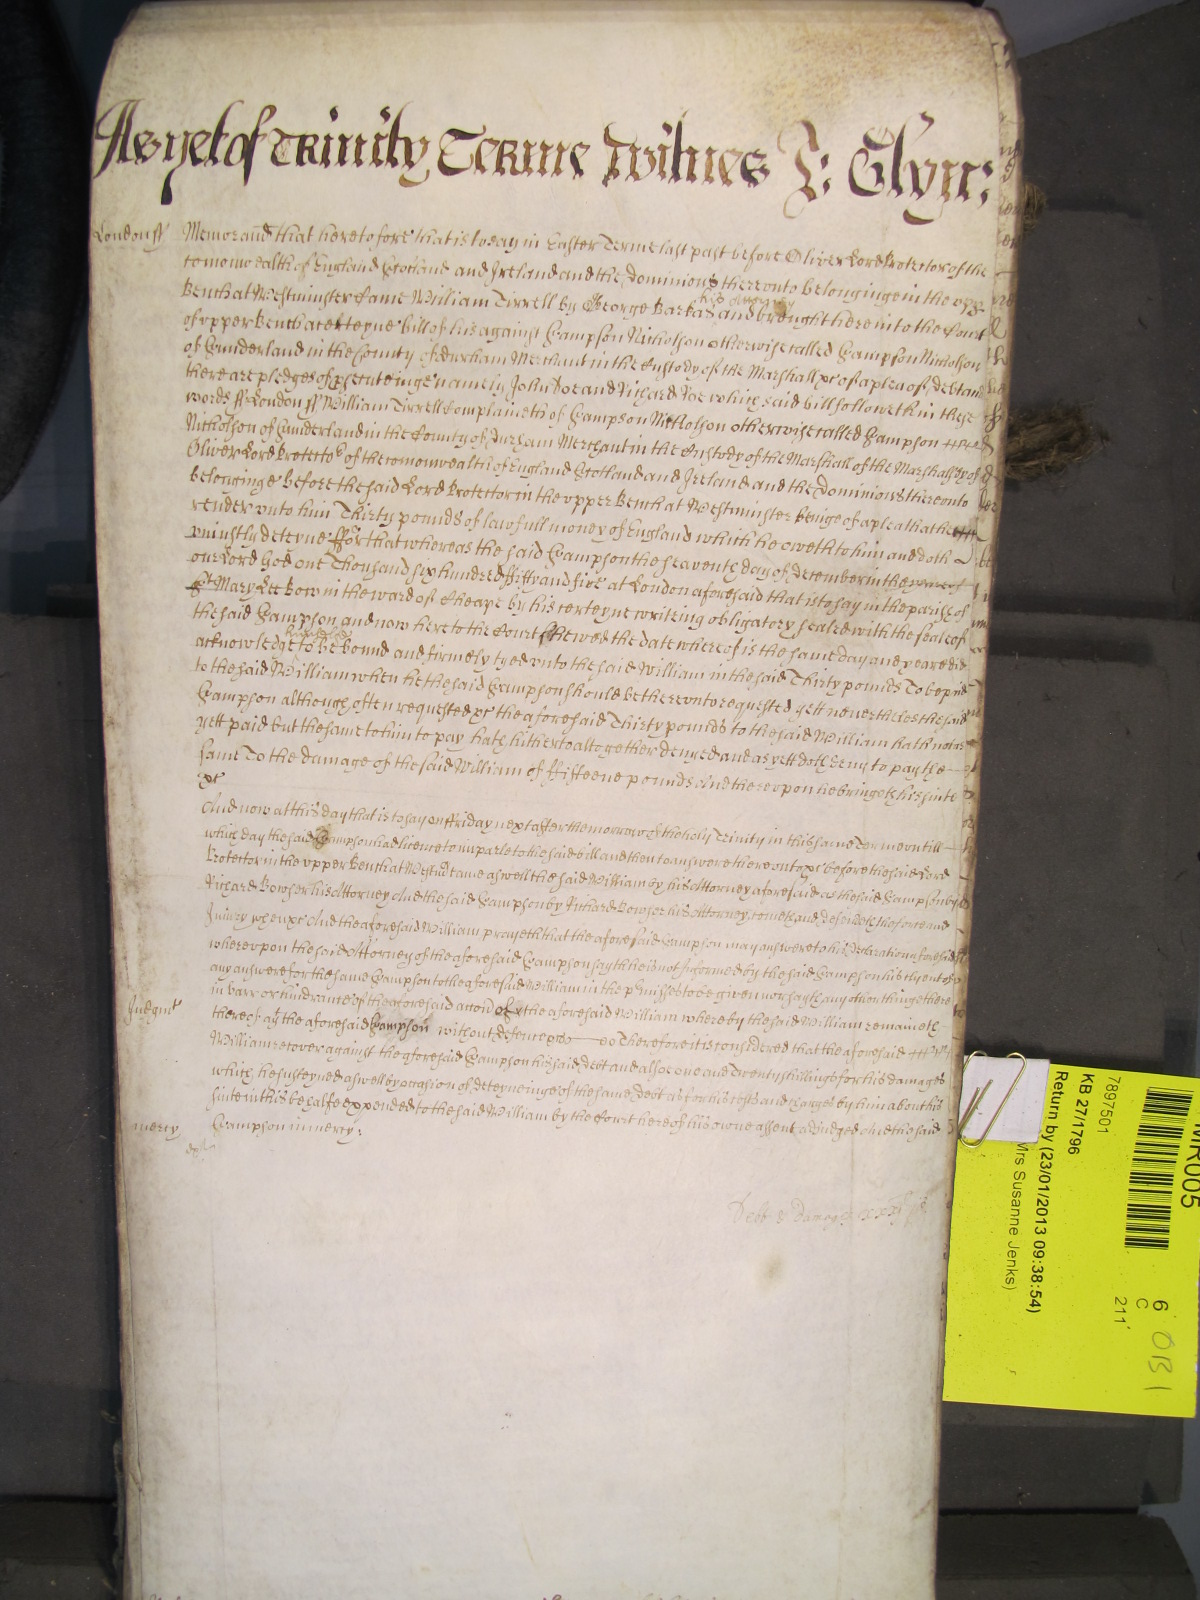 As yet of Trinity Terme Witnes J: Glyn:
London ss Memorand that heretofore that is to say in Easter Terme last past before Oliver Lord Protector of the
comonwealth of England Scotland and Ireland and the Dominions thereonto belonginge in the upp
Bench at Westminster Came William Tirrell by George Barkas his Attorney and brought here into the Court
of upper Bench a certeyne bill of his against Sampson Nicholson otherwise called Sampson Nicholson
of Sunderland in the County of Durham Merchant in the Custody of the Marshall &c of a plea of Debt and
there are pledges of prosecuteinge namely John Doe and Richard Roe which said bill followeth in these
words ss London ss William Tirrell Complaineth of Sampson Nicholson otherwise called Sampson
Nicholson of Sunderland in the County of Durham Merchant in the Custody of the Marshall of the Marshallsy of
Oliver Lord Protector of the comonwealth of England Scotland and Ireland and the Dominions thereonto
belonginge before the said Lord Protector in the upper Bench at Westminster beinge of a plea that he
render unto him Thirty pounds of lawfull money of England which he oweth to him and doth
uniustly deteyne ffor that whereas the said Sampson the seaventh day of December in the yeare of
our Lord God one Thousand six hundred ffifty and five at London aforesaid that is to say in the parish of
St Mary Le Bow in the ward of Cheape by his certeyne writeing obligatory sealed with the seale of
the said Sampson and now here to the Court shewed the date whereof is the same day and yeare did
acknowledge himselfe to be bound and firmely tyed unto the said William in the said Thirty pounds To be paid
to the said William when he the said Sampson should be thereonto requested yett neverthelesse the said
Sampson although often requested &c the aforesaid Thirty pounds to the said William hath not as
yett paid but the same to him to pay hath hitherto altogether denyed and as yett doth deny to pay the
same To the damage of the said William of ffifteene pounds And thereupon he bringeth his suite
&c
And now at this day that is to say on ffriday next after the morrow of the holy Trinity in this same Terme untill
which day the said Sampson had licence to imparle to the said bill and then to answere thereonto &c before the said Lord
Protector in the upper Bench at Westm Came aswell the said William by his Attorney aforesaid as the said Sampson by
Richard Bowser his Attorney And the said Sampson by Richard Bowser his Attorney cometh and defendeth the force and
Iniury when &c And the aforesaid William prayeth that the aforesaid Sampson may answere to his Declaration aforesaid
whereupon the said Attorney of the aforesaid Sampson sayth he is not Informed by the said Sampson his clyent of
any answere for the same Sampson to the aforesaid William in the pmisses to be given nor sayth any other thinge there
in barr or hindrance of the aforesaid accon of the aforesaid William whereby the said William remaineth
Judgmt thereof agt the aforesaid Sampson without defence &c Therefore it is considered that the aforesaid
William recover against the aforesaid Sampson his said Debt and alsoe one and Twenty shillings for his damages
which he susteyned aswell by occasion of deteyneinge of the same Debt as for his costs and charges by him about his
suite in this behalfe expended to the said William by the Court here of his owne assent adiudged And the said
mercy Sampson in mercy:
Debt & Damages xxxj
MR005
7897501
KB 27/1796
Return by (23/01/2013 09:38:54)
Mrs Susanne Jenks)
6
C
211
OB1